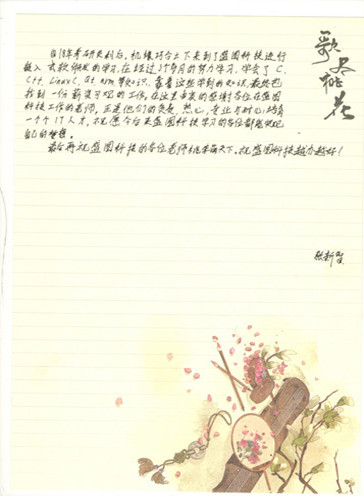 歌尽桃花
自18年考研失利后，机缘巧合之下来到了蓝图科技进行
嵌入式软件开发的学习，在经过5个月的努力学习，学会了C、
C++、Linux C、Qt arm 等知识，靠着这些学到的知识，最终也
找到一份薪资可观的工作，在这里真实的感谢各位在蓝图
科技工作的老师，正是他们的负责、热心、专业与耐心，培育
一个个IT人才，祝愿今后来蓝图科技学习的各位都能实现
自己的梦想。
最后再祝蓝图科技的各位老师桃李满天下，祝蓝图科技越办越好！
张新